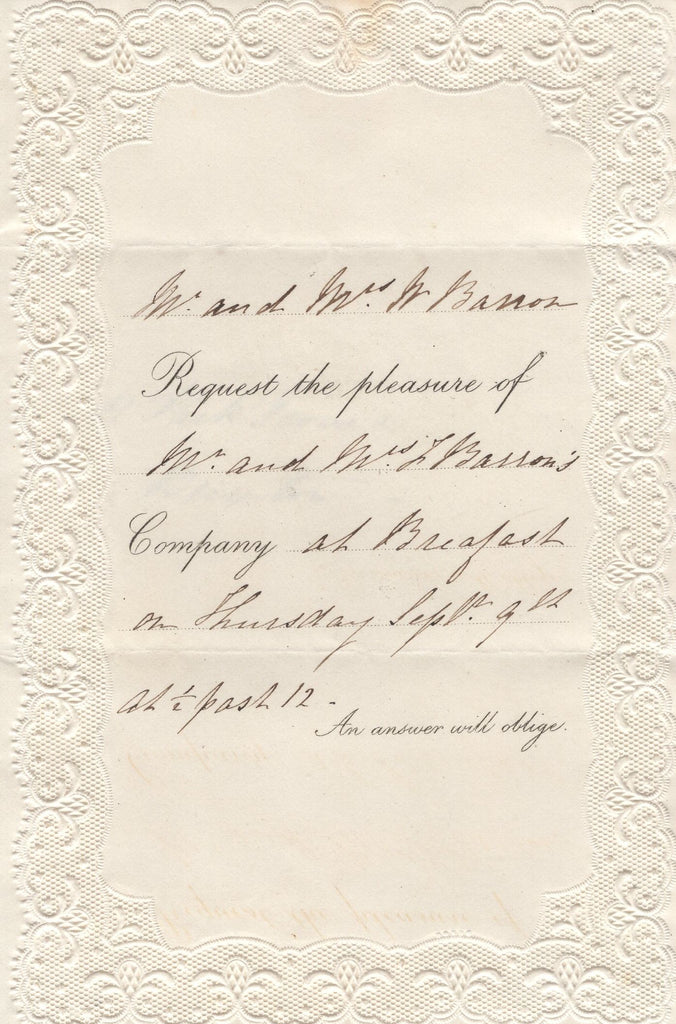 Mr. and Mrs W Barron
Request the pleasure of
Mr. and Mrs F Barron's
Company at Breafast
on Thursday Sept. 9th
at ½ past 12 -
An answer will oblige.